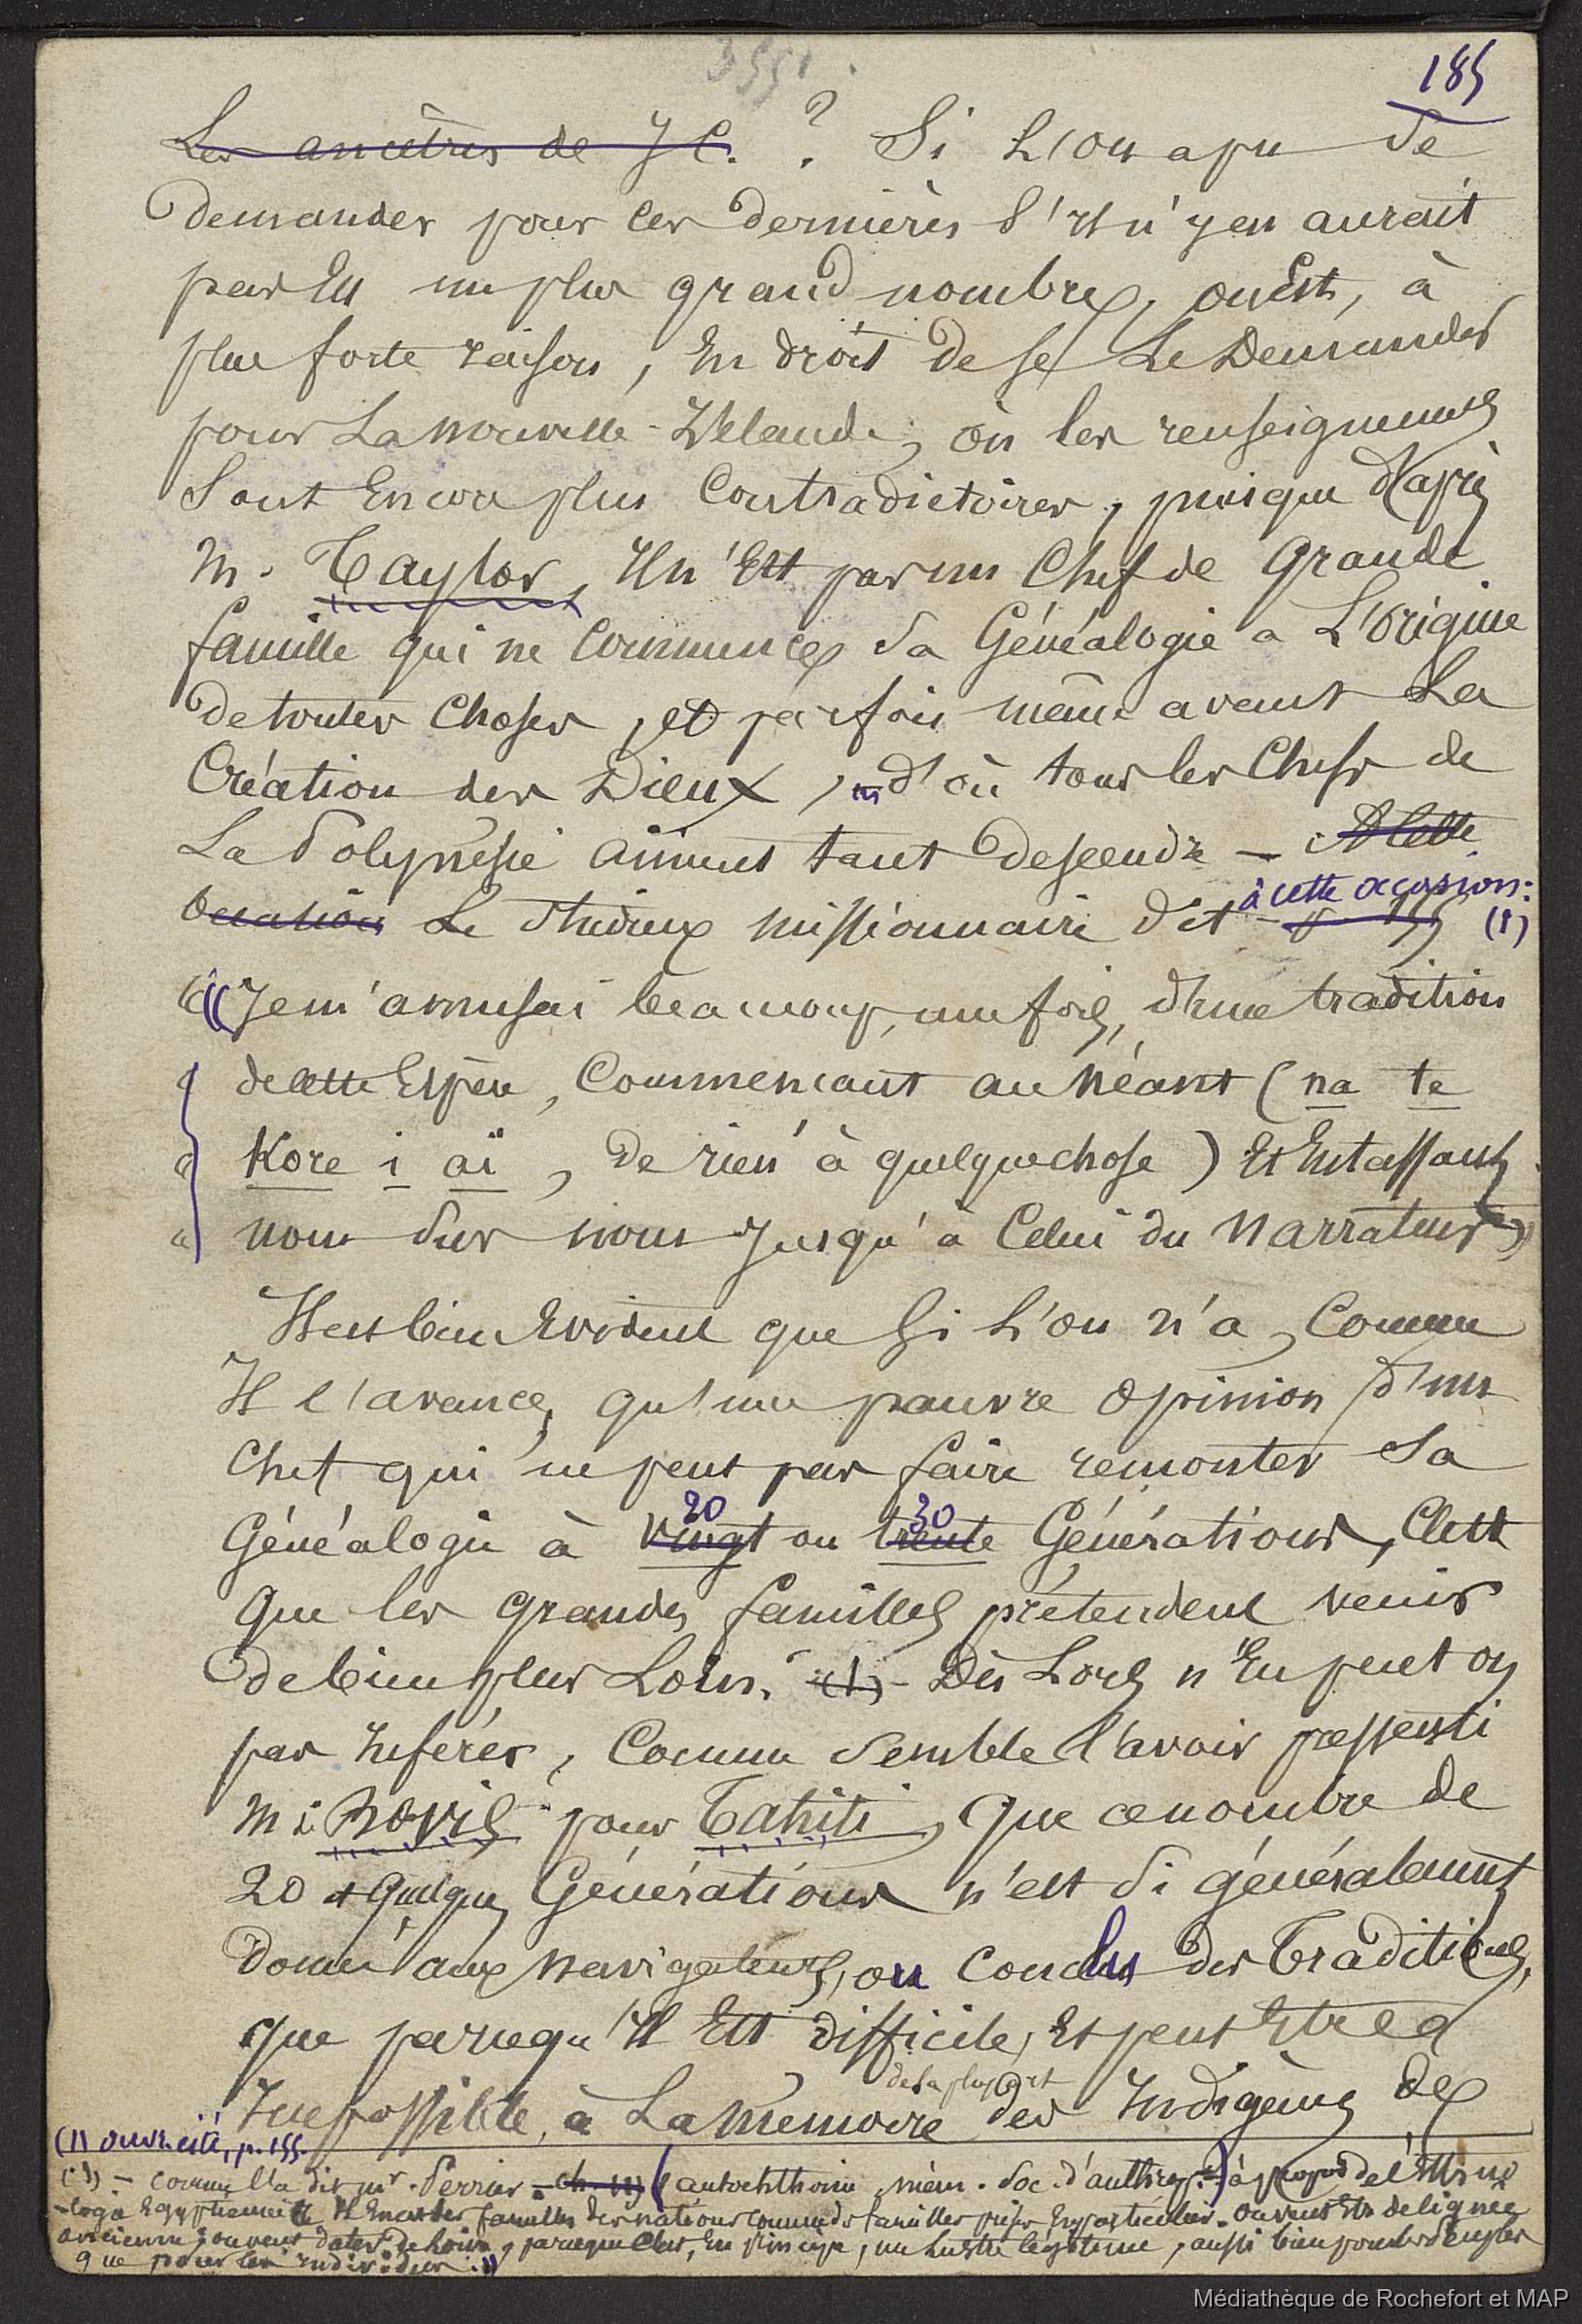 3551.
185
Les ancêtres de J C. ? Si L'on a pu se
demander pour ces dernières s'il n'y en aurait
pas Eu un plus grand nombre, on Est, à
plus forte raison, En droit de se Le Demander
pour La nouvelle-Zélande, où les renseignements
Sont Encore plus Contradictoires, puisque d'après
M. Taylor, Il n'Est pas un Chef de Grande
famille qui ne Commence sa Généalogie à L'Origine
de toutes Choses, et parfois même avant La
Création des Dieux, d'où tous les Chefs de
La Polynésie aiment tant Descendre — A Cette
occasion Le studieux Missionnaire dit à cette occasion: p 155 (1)
« Je m'amusai beaucoup, une fois, d'une tradition
« de cette Espèce, Commençant au Néant (na te
« Kore i ai, De rien à quelque chose) Et Entassant
« nom sur nom Jusqu'à Celui du Narrateur »
Il est bien Evident que Si L'on n'a, Comme
Il l'avance, qu'une pauvre Opinion d'un
Chef qui ne peut pas faire remonter Sa
Généalogie à vingt 20 ou trente 30 Générations, C'est
que les Grandes familles prétendent venir
de bien plus Loin. (1) - Dès Lors n'En peut on
pas Inférer, Comme Semble l'avoir pressenti
M. Bovis pour Tahiti, Que ce nombre de
20 et Quelques Générations n'est Si généralement
Donné aux Navigateurs, ou Conclus des Traditions,
que parcequ'Il Est difficile, Et peut Etre
Impossible, à La Mémoire de la plupart des Indigènes de
(1) ouvr. cité, p. 155.
(1) — comme l'a dit Mr. Perrier - ch. 11) (autochthonie, mém. Soc. d'anthrop.) à propos de l'Ethno
-logie Egyptienne « Il En est des familles des nations comme des familles prises En particulier. On veut Etre de lignée
ancienne; on veut dater de Loin, parceque C'est, En principe, un Lustre légitime, aussi bien pour les peuples
que pour les Individus. »
Médiathèque de Rochefort et MAP